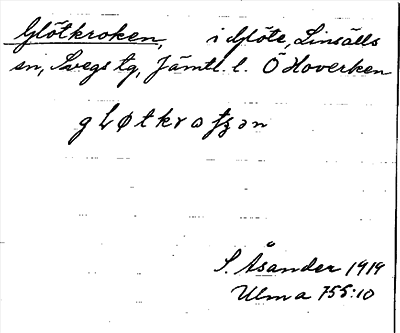 Glötkroken, i Glöte, Linsälls
sn, Svegs tg, Jämtl. l. Ö Hoverken
S. Åsander 1919
Ulma 755:10